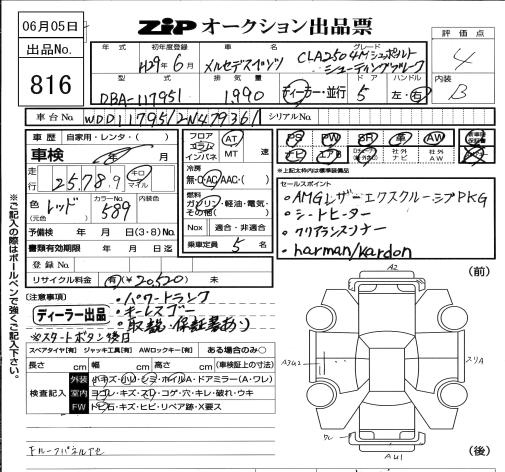 06月05日
ZIP オークション出品票
出品No. 816
評価点 4
内装 B
年式 初年度登録 H29年6月
車名 メルセデスベンツ
グレード CLA250 4M シュポルト
シューティングブレーク
型式 DBA-117951
排気量 1,990
ディーラー・並行
ドア 5
ハンドル 左・右
車台No. WDD1179512N479361
シリアルNo.
車歴 自家用・レンタ・( )
車検 年 月
走行 25,789 キロ マイル
色(元色) レッド
カラーNo. 589
内装色
予備検 年 月 日(3・8)No.
書類有効期限 年 月 日迄
登録No.
リサイクル料金 有(¥20,520) 未
フロア コラム インパネ
AT MT 速
冷房 無・C・AC・AAC・( )
燃料 ガソリン・軽油・電気・その他( )
Nox 適合・非適合
乗車定員 5 名
PS PW SR 革 AW
ナビ エアB 社外ナビ 社外AW
※上記太枠内は標準装備品
セールスポイント
・AMGレザーエクスクルーシブPKG
・シートヒーター
・クリアランスソナー
・harman/kardon
(注意事項)
ディーラー出品
・パワートランク
・キーレスゴー
・取説・保証書あり
※スタートボタン後日
スペアタイヤ[有] ジャッキ工具[有] AWロックキー[有] ある場合のみ○
長さ cm 幅 cm 高さ cm (車検証上の寸法)
検査記入
外装 小キズ・小凹・シミ・ホイルA・ドアミラー(A・ワレ)
室内 ヨゴレ・キズ・スレ・コゲ・穴・キレ・破れ・ウキ
FW トビ石・キズ・ヒビ・リペア跡・X要ス
※ご記入の際はボールペンで強くご記入下さい。
(前)
A2
A3U2
スリA
ワレ
AU1
(後)